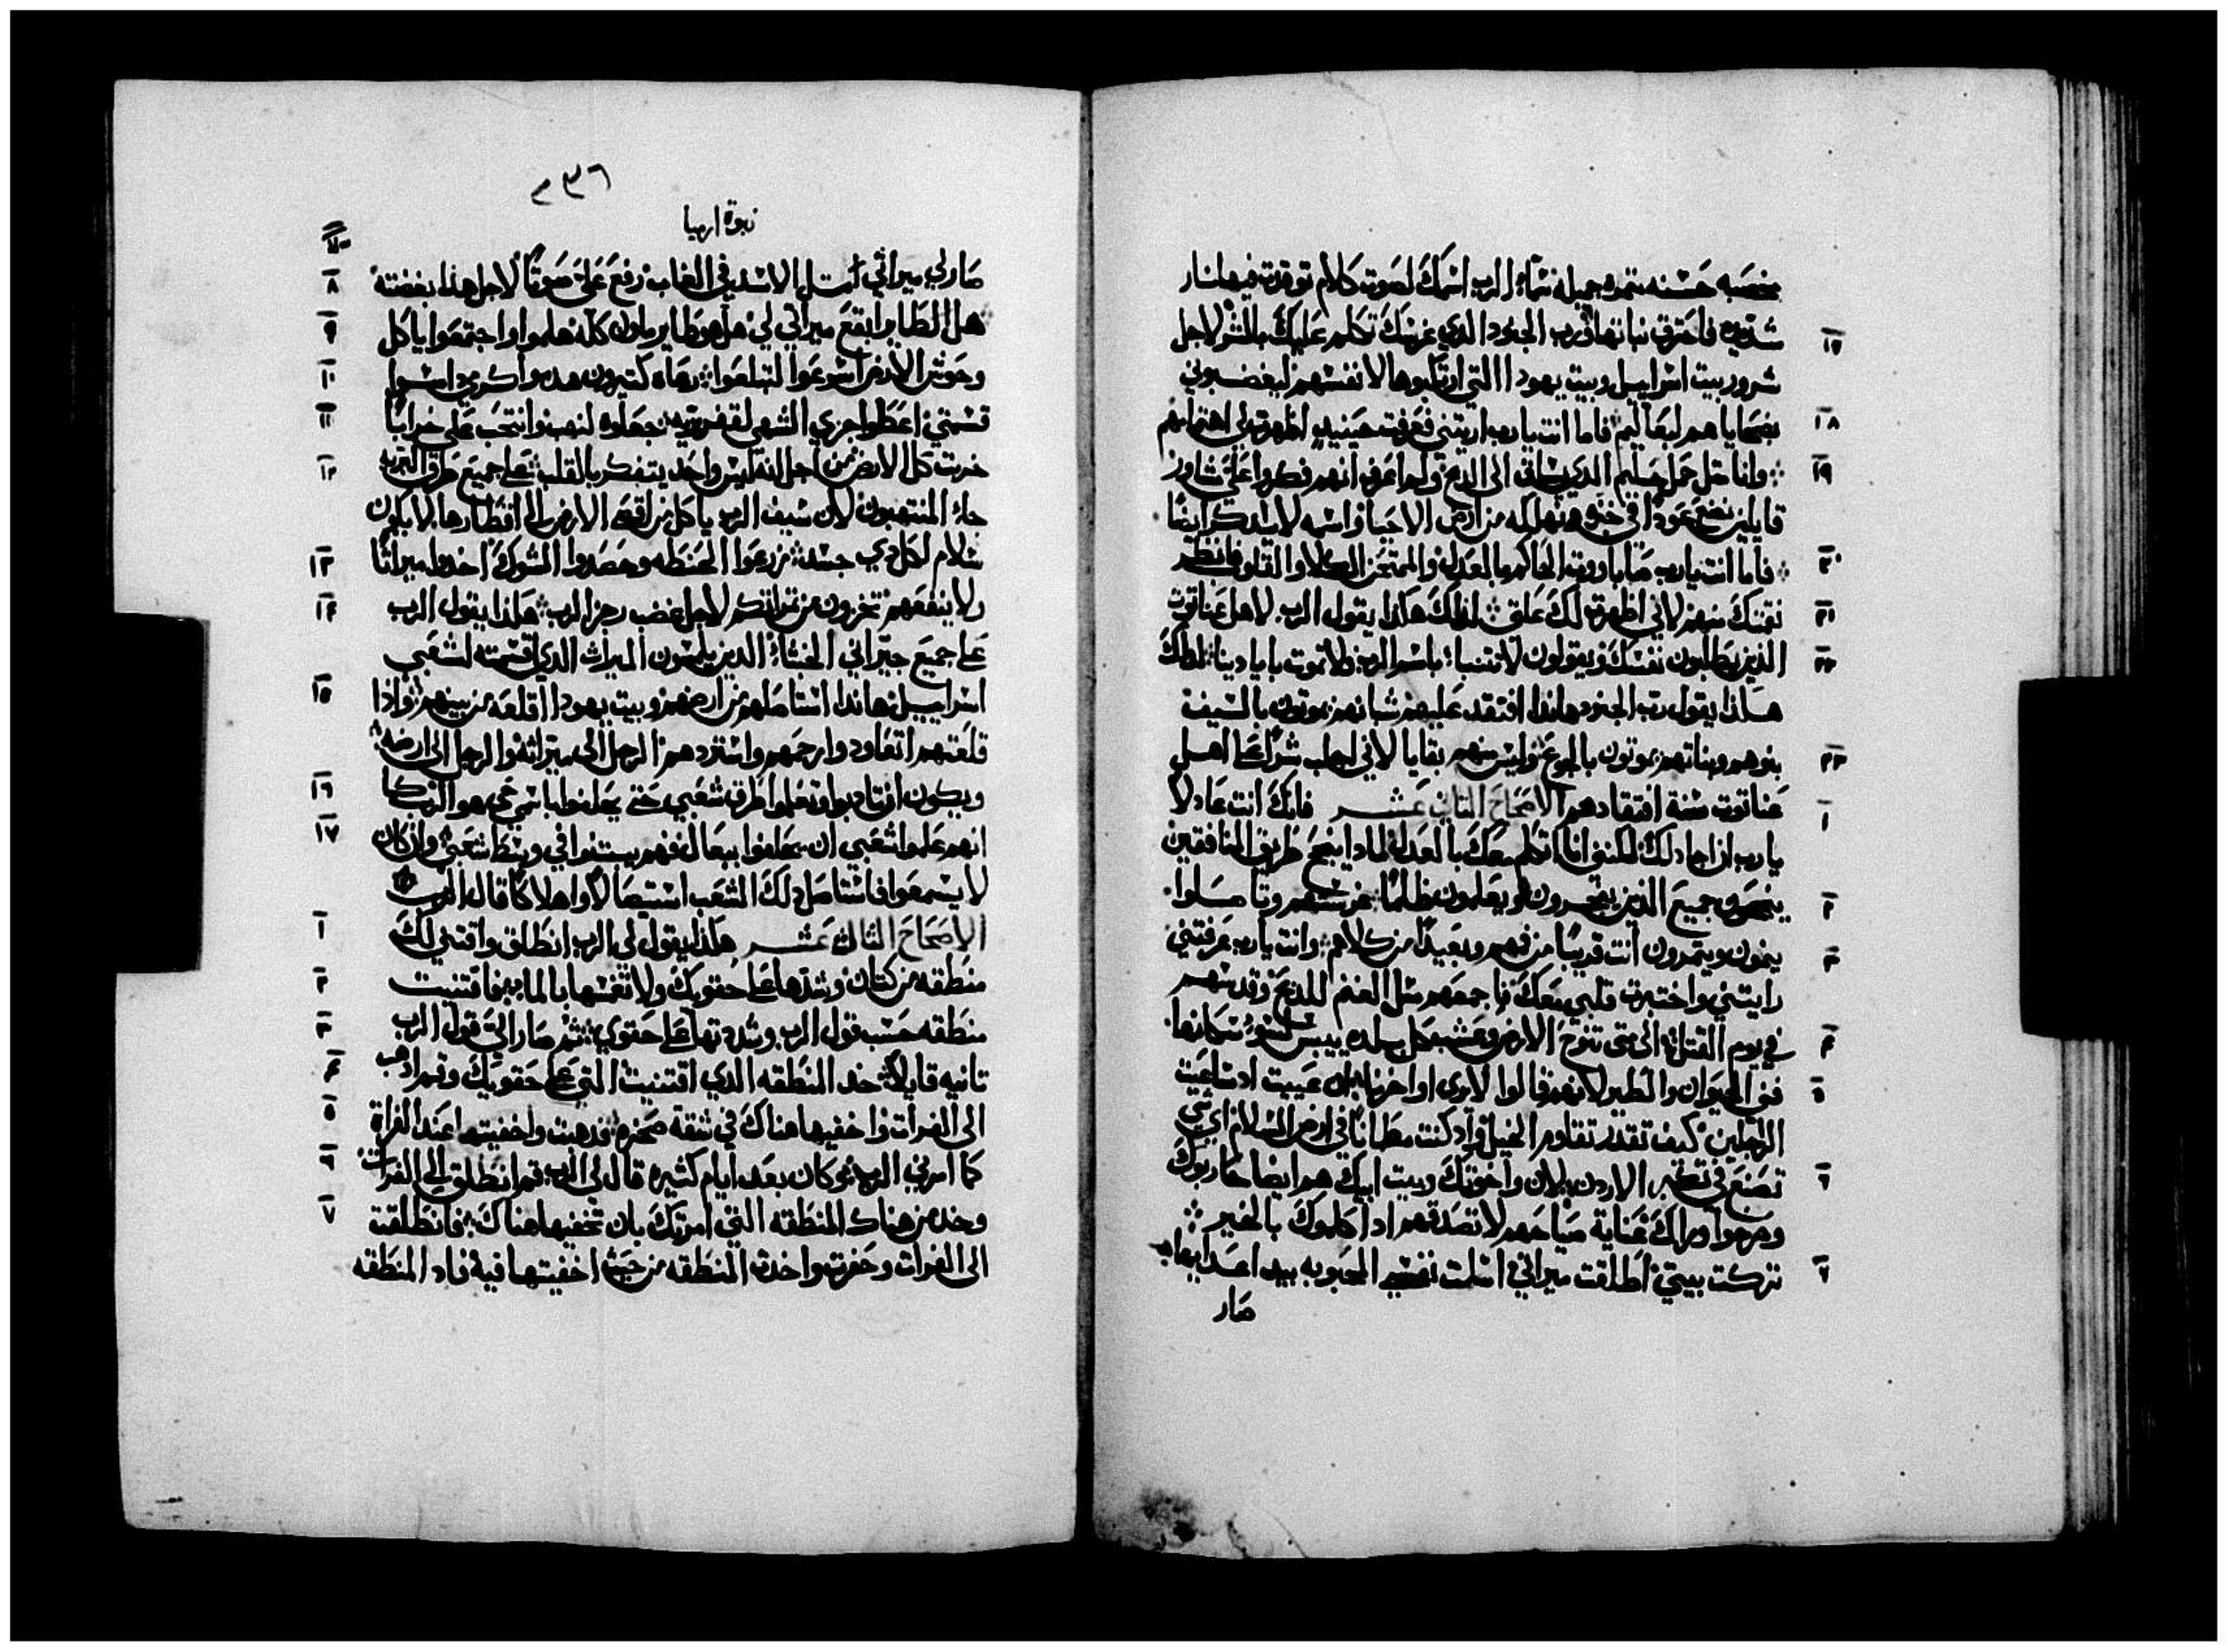 مخصبه حسنه تمره جميله تماء الرب اسمك لصوت كلام توقدت فيها نار
شديده فاحترق نباتها ورب الجنود الذي غرسك تكلم عليك بالشر لاجل
١٧
شرور بيت اسراييل وبيت يهودا التي ارتكبوها لانفسهم ليغضبوني
بضحاياهم لبعاليم فاما انت يارب اريتني فعرفت حينيد اظهرت لي اهتمامهم
١٨
وانا متل حمل سليم الذي يساق الى الدبح ولم اعرف انهم فكروا علي مشاوره
١٩
قايلين نضع عودا في خبزه ونهلكه من ارض الاحيا واسمه لا يدكر ايضا
فاما انت يارب صاباووت الحاكم بالعدل والممتحن الكلا والقلوب فانظر
٢٠
نقمتك منهم لاني اظهرت لك علق لذلك هكذا يقول الرب لاهل عناتوت
٢١
الذين يطلبون نفسك ويقولون لا تتنبا باسم الرب ولا تموت بايادينا لذلك
٢٢
هكذا يقول رب الجنود هانذا افتقد عليهم شبانهم يموتون بالسيف
بنوهم وبناتهم يموتون بالجوع وليس منهم بقايا لاني اجلب شرا على اهل
٢٣
عناتوت سنة افتقادهم الاصحاح التاني عشر فانك انت عادلا
١
يارب ان اجادلك لكنني انا اتكلم معك بالعدل لمادا ينجح طريق المنافقين
ينجحون جميع الذين يفجرون ويعلمون ظلما غرستهم وتاصلوا
٢
ينمون ويتمرون انت قريبا من فمهم وبعيدا من كلاهم وانت يارب عرفتني
٣
رايتني واختبرت قلبي معك فاجمعهم متل الغنم للدبح وقدسهم
في يوم القتل الى متى تنوح الارض وعشب كل بلده ييبس لسوء سكانها
٤
فني الحيوان والطير لانهم قالوا لا يرى اواخرنا ان عييت اد سعيت
٥
الراجلين كيف تقدر تقاوم الخيل واد كنت مطمانا في ارض السلام اي شي
تصنع في تكبر الاردن لان واخوتك وبيت ابيك هم ايضا حاربوك
٦
وصرخوا وراك بغناية صياحهم لا تصدقهم ادا كلموك بالخير
تركت بيتي اطلقت ميراتي اسلمت نفسي المحبوبه بيد اعدايها
٧
صار
٢٣٦
نبوة ارميا
صار لي ميراثي مثل الاسد في الغاب رفع علي صوتا لاجل هذا بغضته
٨
هل الطاير ابقع ميراثي لي هل هو طاير ملون كله هلموا واجتمعوا ياكل
٩
وحوش الارض اسرعوا لتبلعوا رعاه كتيرون هدموا كرمي داسوا
١٠
قسمتي اعطوا جزي الشهي لقفر بريه جعلوه لنهب وانتحب علي خرابا
١١
خربت كل الارض من اجل انه ليس واحد يتفكر بالقلب على جميع طرق البريه
١٢
جاء المنتهبون لان سيف الرب ياكل من اقصى الارض الى اقطارها لا يكون
سلام لكل دي جسد زرعوا الحنطه وحصدوا الشوك اخدوا ميراثا
١٣
ولا ينفعهم تخزون من تمراتكم لاجل غضب رجز الرب هكذا يقول الرب
١٤
على جميع جيراني الخبثاء الدين يلمسون الميراث الدي قسمته لشعبي
اسراييل هاندا استاصلهم من ارضهم وبيت يهودا اقلعه من بينهم واذا
١٥
قلعتهم اتعاود وارحمهم واستردهم الرجل الى ميراثه والرجل الى ارضه
ويكون ان تادبوا وتعلموا طرق شعبي حتى يحلفوا باسمي حي هو الرب كما
١٦
انهم علموا شعبي ان يحلفوا ببعال فهم يبتنوا في وسط شعبي وان كان
١٧
لا يسمعوا فاستاصل دلك الشعب استيصالا واهلاكا قاله الرب
الاصحاح التالت عشر هكذا يقول لي الرب انطلق واقتني لك
١
منطقه من كتان وشدها على حقويك ولا تغمسها بالما فاقتنيت
٢
منطقه حسب قول الرب وشددتها على حقوي ثم صار الي قول الرب
٣
تانيه قايلا خد المنطقه الدي اقتنيت التي على حقويك وقم ادهب
٤
الى الفرات واخفيها هناك في شقة صخره فدهبت واخفيتها عند الفراة
٥
كما امرني الرب وكان بعد ايام كثيره قال لي الرب قم انطلق الى الفرات
٦
وخد من هناك المنطقه التي امرتك بان تخفيها هناك فانطلقت
٧
الى الفرات وحفرت واخدت المنطقه من حيث اخفيتها فيه فاد المنطقه